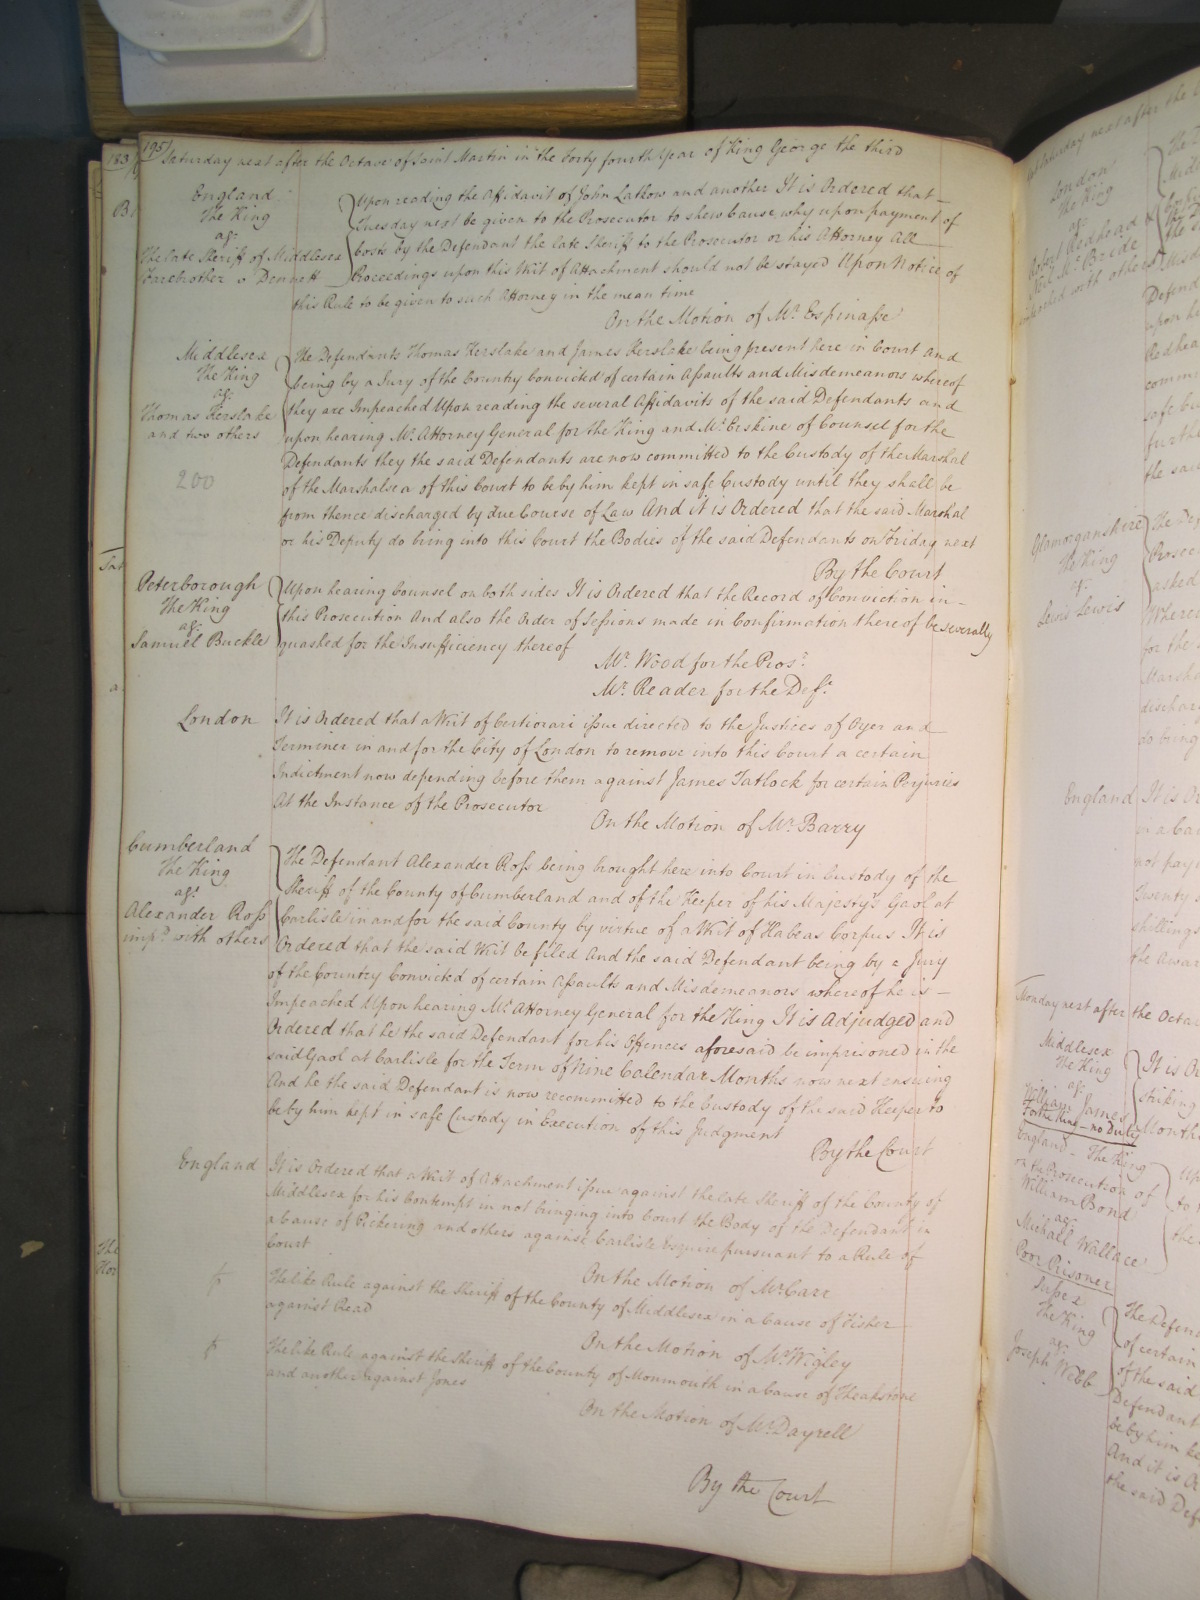 183
195
Saturday next after the Octave of Saint Martin in the Forty fourth Year of King George the third
England
The King
agt
The late Sheriff of Middlesex
Farebrother v Dennett
Upon reading the Affidavit of John Latkow and another It is Ordered that
Tuesday next be given to the Prosecutor to shew Cause why upon payment of
Costs by the Defendant the late Sheriff to the Prosecutor or his Attorney All
Proceedings upon this Writ of Attachment should not be stayed Upon Notice of
this Rule to be given to such Attorney in the mean time
On the Motion of Mr. Espinasse
Middlesex
The King
agt
Thomas Kerslake
and two others
200
The Defendants Thomas Kerslake and James Kerslake being present here in Court and
being by a Jury of the Country Convicted of certain Assaults and Misdemeanors whereof
they are Impeached Upon reading the several Affidavits of the said Defendants and
upon hearing Mr. Attorney General for the King and Mr. Erskine of Counsel for the
Defendants they the said Defendants are now committed to the Custody of the Marshal
of the Marshalsea of this Court to be by him kept in safe Custody until they shall be
from thence discharged by due Course of Law And it is Ordered that the said Marshal
or his Deputy do bring into this Court the Bodies of the said Defendants on Friday next
By the Court
Peterborough
The King
agt
Samuel Buckle
Upon hearing Counsel on both sides It is Ordered that the Record of Conviction in
this Prosecution And also the Order of Sessions made in Confirmation thereof be severally
quashed for the Insufficiency thereof
Mr. Wood for the Pros.r
Mr. Reader for the Def.t
London
It is Ordered that a Writ of Certiorari issue directed to the Justices of Oyer and
Terminer in and for the City of London to remove into this Court a certain
Indictment now depending before them against James Tatlock for certain Perjuries
At the Instance of the Prosecutor
On the Motion of Mr. Barry
Cumberland
The King
agt
Alexander Ross
imp.d with others
The Defendant Alexander Ross being brought here into Court in Custody of the
Sheriff of the County of Cumberland and of the Keeper of his Majesty's Gaol at
Carlisle in and for the said County by virtue of a Writ of Habeas Corpus It is
Ordered that the said Writ be filed And the said Defendant being by a Jury
of the Country Convicted of certain Assaults and Misdemeanors whereof he is
Impeached Upon hearing Mr. Attorney General for the King It is Adjudged and
Ordered that he the said Defendant for his Offences aforesaid be imprisoned in the
said Gaol at Carlisle for the Term of Nine Calendar Months now next ensuing
And he the said Defendant is now recommitted to the Custody of the said Keeper to
be by him kept in safe Custody in Execution of this Judgment
By the Court
England
It is Ordered that a Writ of Attachment issue against the late Sheriff of the County of
Middlesex for his Contempt in not bringing into Court the Body of the Defendant in
a Cause of Pickering and others against Carlisle Esquire pursuant to a Rule of
Court
On the Motion of Mr. Carr
The like Rule against the Sheriff of the County of Middlesex in a Cause of Fisher
against Read
On the Motion of Mr. Wigley
The like Rule against the Sheriff of the County of Monmouth in a Cause of Theakstone
and another against Jones
On the Motion of Mr. Dayrell
By the Court
London
The King
agt
Robert Redhead &
Neil McBride
with others
Glamorganshire
The King
agt
Lewis Lewis
England
It is Or
Monday next after the Octav
Middlesex
The King
agt
William James
For the King – no Duty
It is Or
striking
Month
England – The King
on the Prosecution of
William Bond
agt
Michall Wallace
Poor Prisoner
The King
agt
Joseph Webb
The Defen
of certain
of the said
Defendant
be by him ke
And it is O
the said Def